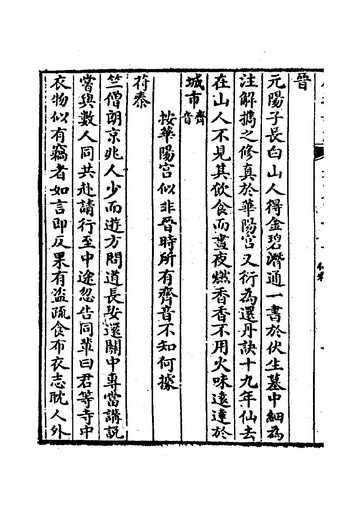 晉
元陽子長白山人得金碧潛通一書於伏生墓中細為
注解攜之修真於華陽宮又衍為還丹訣十九年仙去
在山人不見其飲食而晝夜燃香香不用火味遠達於
城市齊音
按華陽宮似非晉時所有齊音不知何據
苻秦
竺僧朗京兆人少而遊方問道長安還關中專當講說
嘗與數人同共赴請行至中途忽告同輩曰君等寺中
衣物似有竊者如言即反果有盜疏食布衣志耽人外